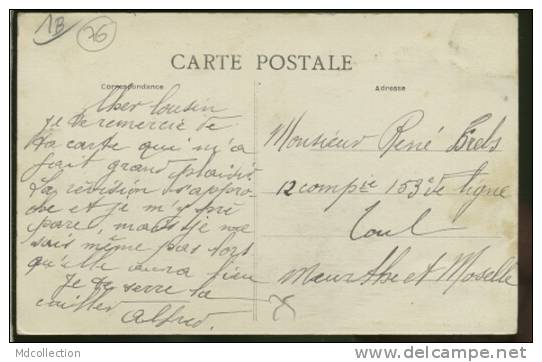 1B
26
CARTE POSTALE
Correspondance
Adresse
Cher Cousin
Je te remercie de
ta carte qui m'a
fait grand plaisir
La révision s'appro-
che et je m'y pré
pare, mais je ne
sais même pas lors
qu'elle aura lieu
Je te serre la
cuiller
Alfred.
Monsieur René
12 compie 153e de ligne
Toul
Meurthe et Moselle
Mdcollection
www.delcampe.net